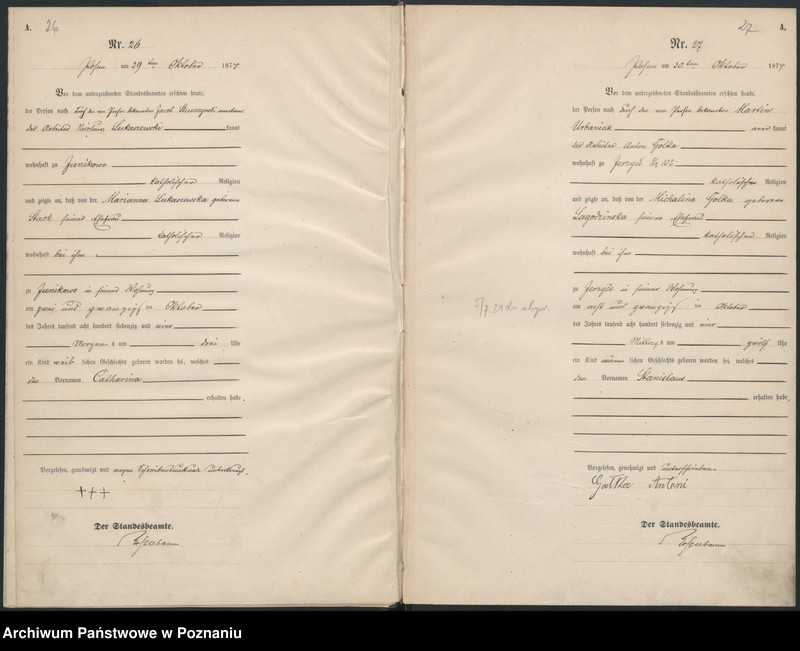 A. 26
Nr. 26
Posen am 29 ten Oktober 1874
Vor dem unterzeichneten Standesbeamten erschien heute,
der Person nach durch den von Person bekannten Jacob
des Arbeiter Nicolaus Lukaszewski kannt
wohnhaft zu Junikowo
katholischer Religion
und zeigte an, daß von der Marianna Lukaszewska geborenen
Stark seiner Ehefrau
katholischer Religion
wohnhaft bei ihm
zu Junikowo in seiner Wohnung
am zwei und zwanzigsten Oktober
des Jahres tausend acht hundert siebenzig und vier
Morgens um drei Uhr
ein Kind weib lichen Geschlechts geboren worden sei, welches
den Vornamen Catharina
erhalten habe.
Vorgelesen, genehmigt und wegen Schreibensunkunde unterkreuzt.
+++
Der Standesbeamte.
27 A.
Nr. 27
Posen am 30 ten Oktober 1874
Vor dem unterzeichneten Standesbeamten erschien heute,
der Person nach durch den von Person bekannten Martin
Urbaniak aner kannt
des Arbeiter Anton Golka
wohnhaft zu Jerzyce No 102
katholischer Religion
und zeigte an, daß von der Michalina Golka geborenen
Lagodzinska seiner Ehefrau
katholischer Religion
wohnhaft bei ihm
zu Jerzyce in seiner Wohnung
am acht und zwanzigsten Oktober
des Jahres tausend acht hundert siebenzig und vier
Mittags um zwölf Uhr
ein Kind männ lichen Geschlechts geboren worden sei, welches
den Vornamen Stanislaus
erhalten habe.
Vorgelesen, genehmigt und unterschrieben
Antoni
Der Standesbeamte.
Archiwum Państwowe w Poznaniu